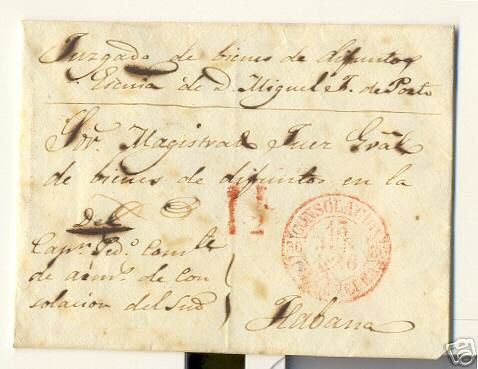 Juzgado de bienes de difuntos
Escriª de D. Miguel F. de Porto
Sor. Magistral Juez Gral
de bienes de difuntos en la
Del
Capn. Pedo. Comte
de armˢ. de Con
solacion del Sud
Habana
1½
CONSOLACION
15